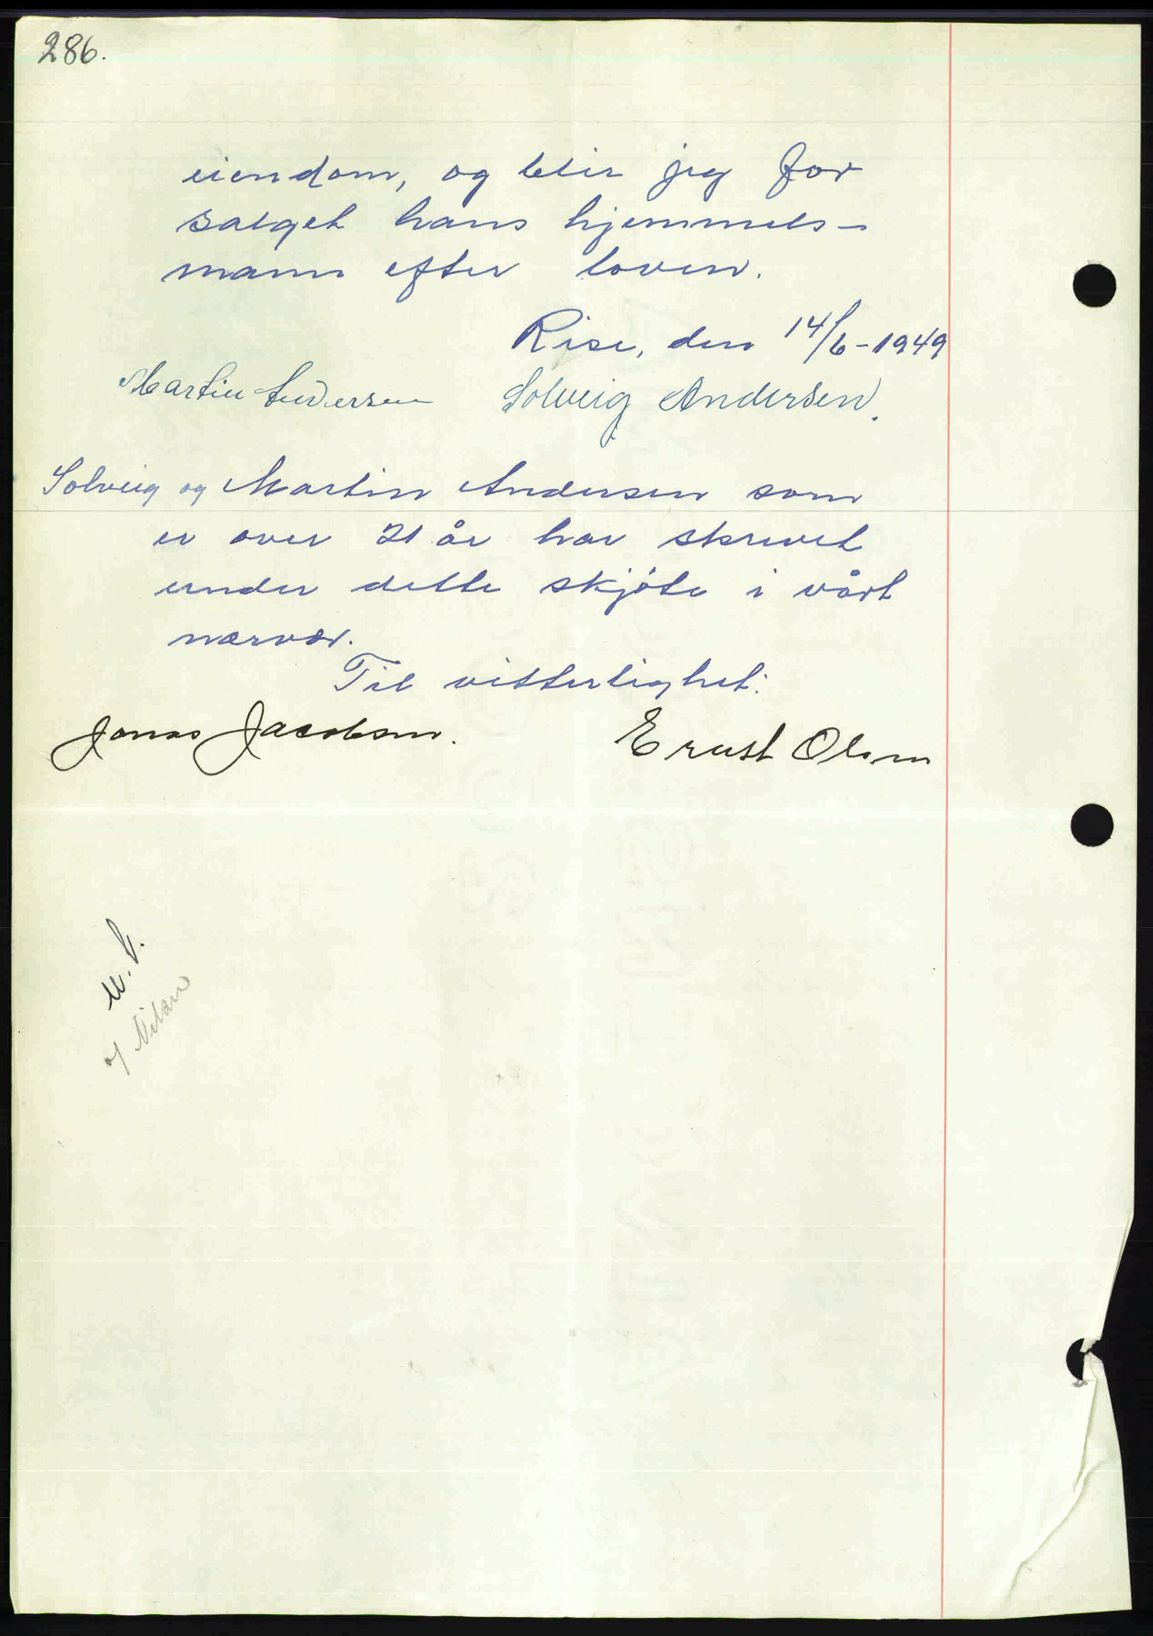 286.
eiendom, og blir jeg for
salget hans hjemmels-
mann efter loven.
Rise, den 14/6-1949
Martin Andersen Solveig Andersen.
Solveig og Martin Andersen som
er over 21 år har skrevet
under dette skjöte i vårt
nærvær.
Til vitterlighet:
Jonas Jacobsen. Ernst Olsen